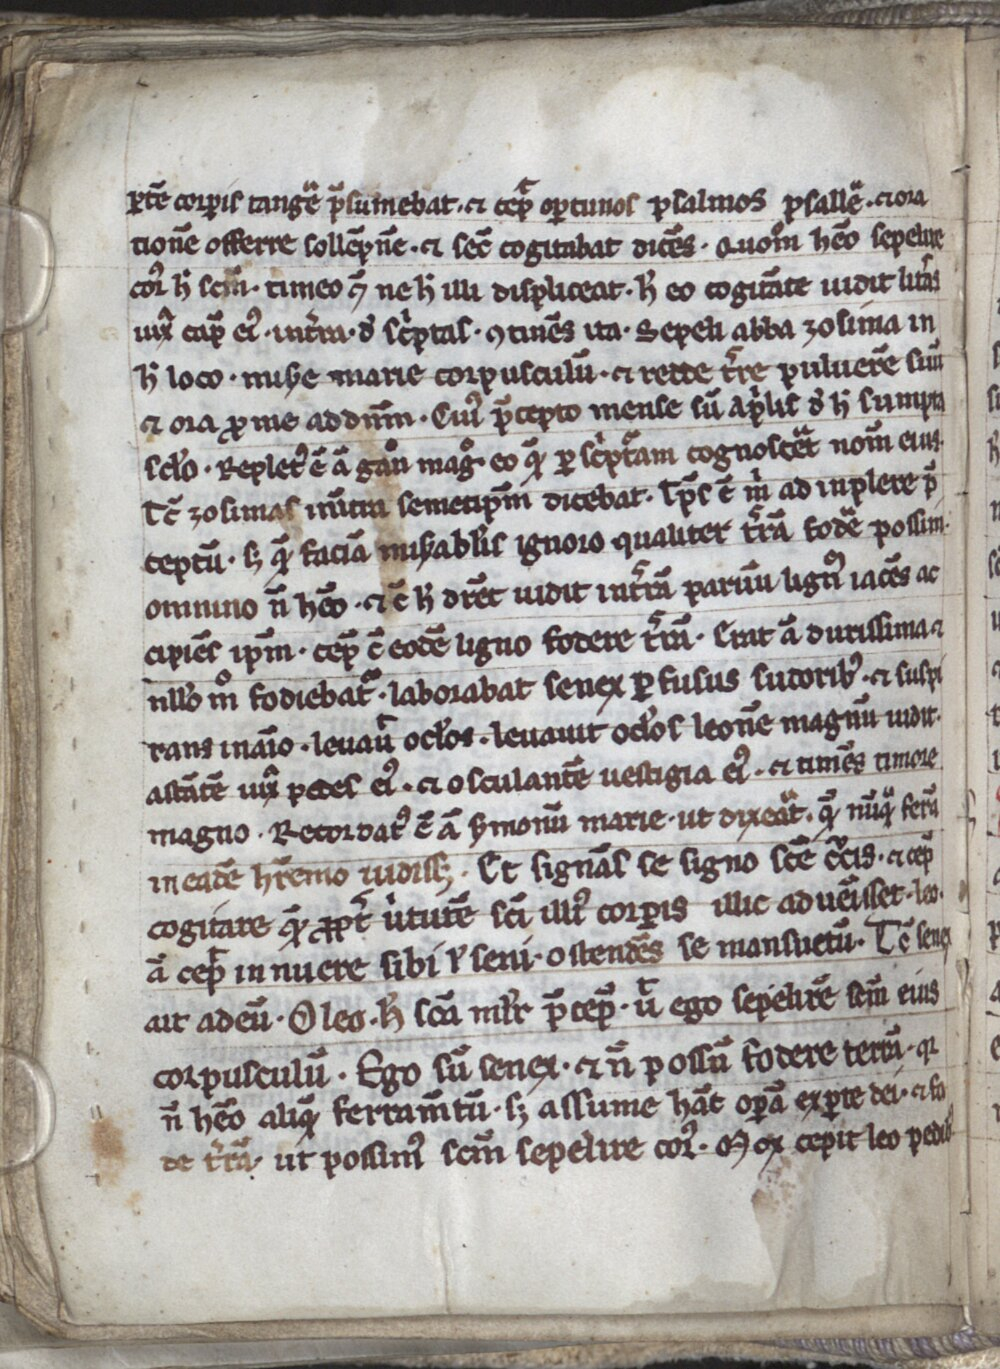 ꝑtē corꝑis tangē p̄sumebat · ⁊ cep̄ oꝑtunos psalmos psallē · ⁊ ora
tionē offerre sollēpnē · ⁊ sec̄ cogitabat dicēs · Quom̄ hēo sepelire
cor̄ h̄ scm̄ · timeo q̄ ne h̄ illi displiceat · h̄ eo cogitāte uidit litr̄as
iux̄ cap̄ ei᷒ · int̄ra · d̄ sc̄ptas · ꝯtinēs ita · Sepeli abba zosima in
h̄ loco · mise marie corpusculū · ⁊ redde t̄re puluerē suū
⁊ ora ꝓ me ad dn̄m · Cui᷒ p̄cepto mense sū ap̄lis d̄ h̄ sumpta
sclo · Replet᷒ ē ā gau mag̊ eo q̄ ꝑ sc̄ptam cognoscēt nom̄ eius ·
Tc̄ zosimas int̄ra semetipm̄ dicebat · Tp̄s ē m̄ ad inplere p̄
ceptū · sꝫ q̄ faciā miserabĺis ignoro qualiter t̄rā fodē possim ·
omnino n̄ hēo · ⁊ c̄ h̄ dr̄et uidit in t̄rā paruū lignū iacēs ac
cipiēs ipm̄ · cep̄ c̄ eodē ligno fodere t̄rā · Erat ā durissima ⁊
nllo m̊ fodiebat᷒ · laborabat senex ꝑfusus sudorib᷒ · ⁊ suspi
rans in aīo · leuaū oclos · leuauit oclos leonē magnū uidit ·
astātē iux̄ pedes ei᷒ · ⁊ osculantē uestigia ei᷒ · ⁊ timēs timore
magno · Recordat᷒ ē ā s̄monū marie · ut dixeāt · q̄ nūq̄ ferā
in eadē hr̄emo uidissꝫ · Et signās se signo scē cruc̄is · ⁊ cep̄
cogitare q̄ ꝓpt̄ ūtutē sci illi᷒ corꝑis illic aduēisset · leo ·
ā cep̄ innuere sibi ł seni · ostendēs se mansuetū · Tc̄ senex
ait ad eū · O leo · h̄ scā ml̄r p̄cep̄ · ū ego sepelirē scm̄ eius
corpusculū · Ego sū senex · ⁊ n̄ possū fodere terrā · qr
n̄ hēo aliq̄ ferram̄tū · sꝫ assume hāc oꝑā ex ꝑte dei · ⁊ fo
de t̄rā · ut possim᷒ scm̄ sepelire cor᷒ · Mox cepit leo pedib᷒